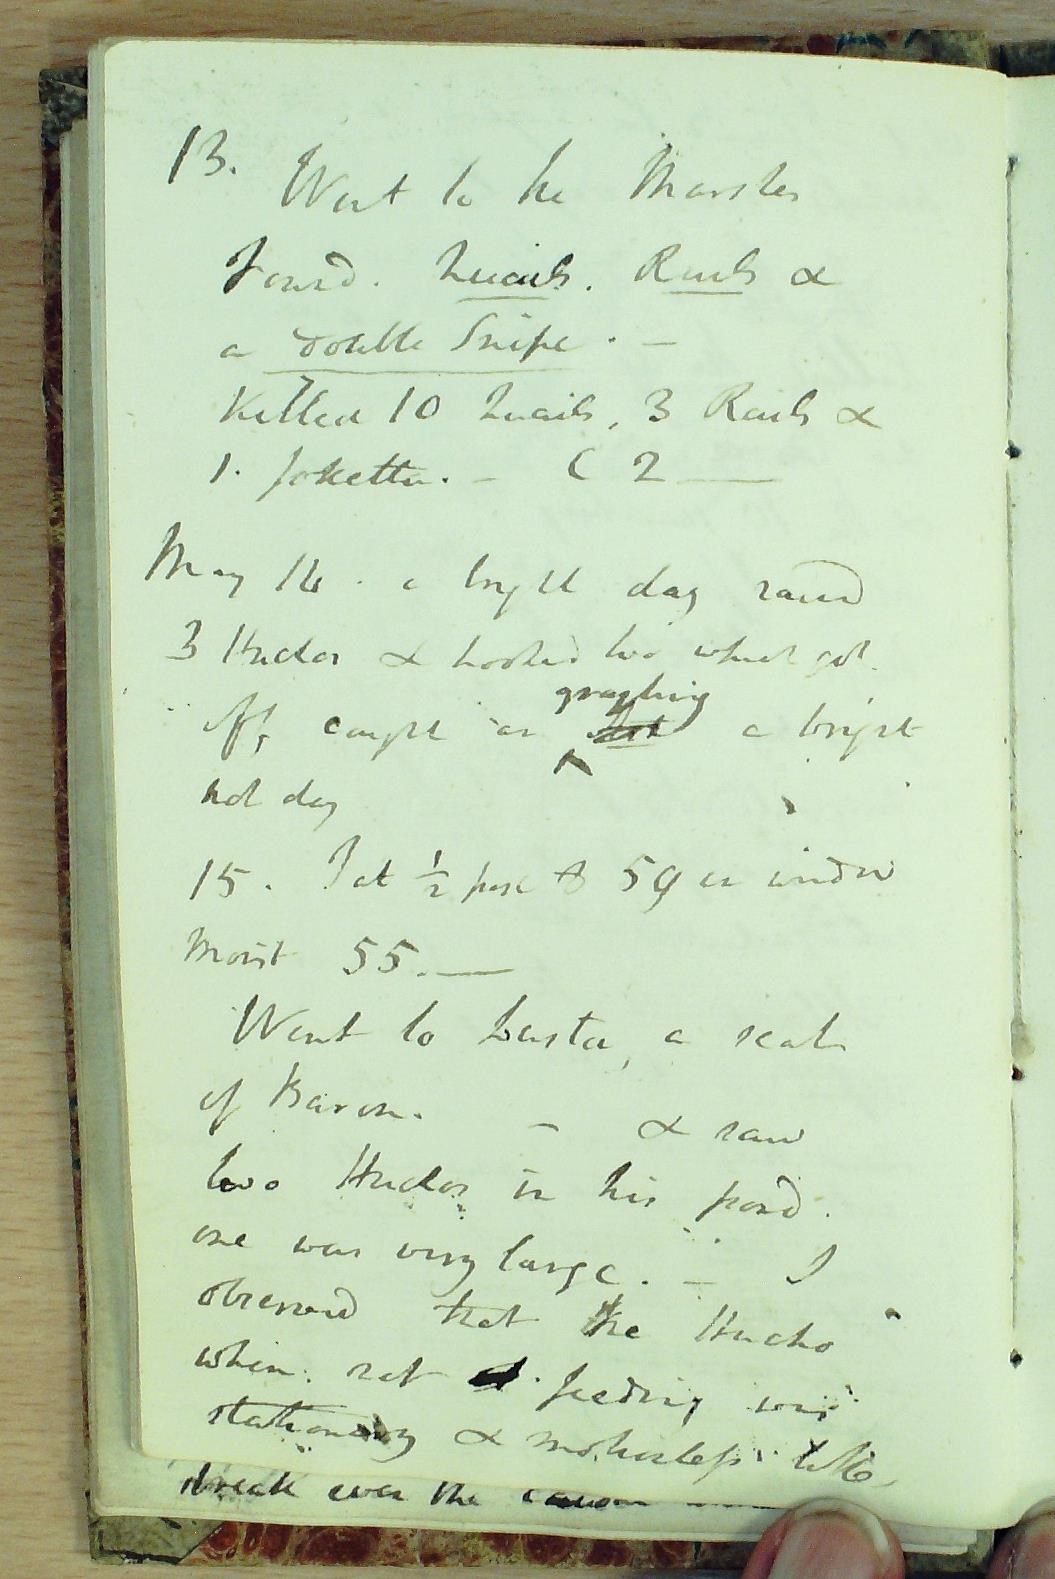 13. Went to the Marshes
found. Quails. Rails &
a double Snipe. —
Killed 10 Quails, 3 Rails &
1. — C 2 —
May 14. a bright day saw
3 Huchos & hooked two which got
off, caught an grayling a bright
hot day
15. T at ½ past 59 in window
moist 55. —
Went to Lusta, a seat
of Baron. — & saw
two Huchos in his pond.
one was very large. — I
observed that the Hucho
when not feeding was
stationary & motionless like
break over the